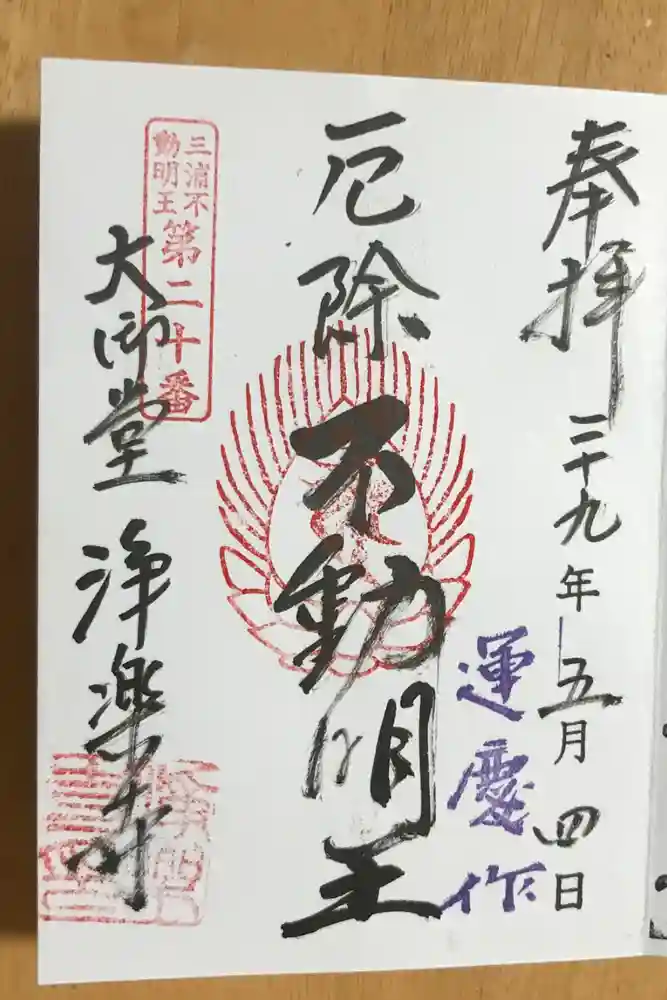 奉拝
二十九年五月四日
運慶作
厄除
不動明王
三浦不動明王
第二十番
大師堂
浄楽寺